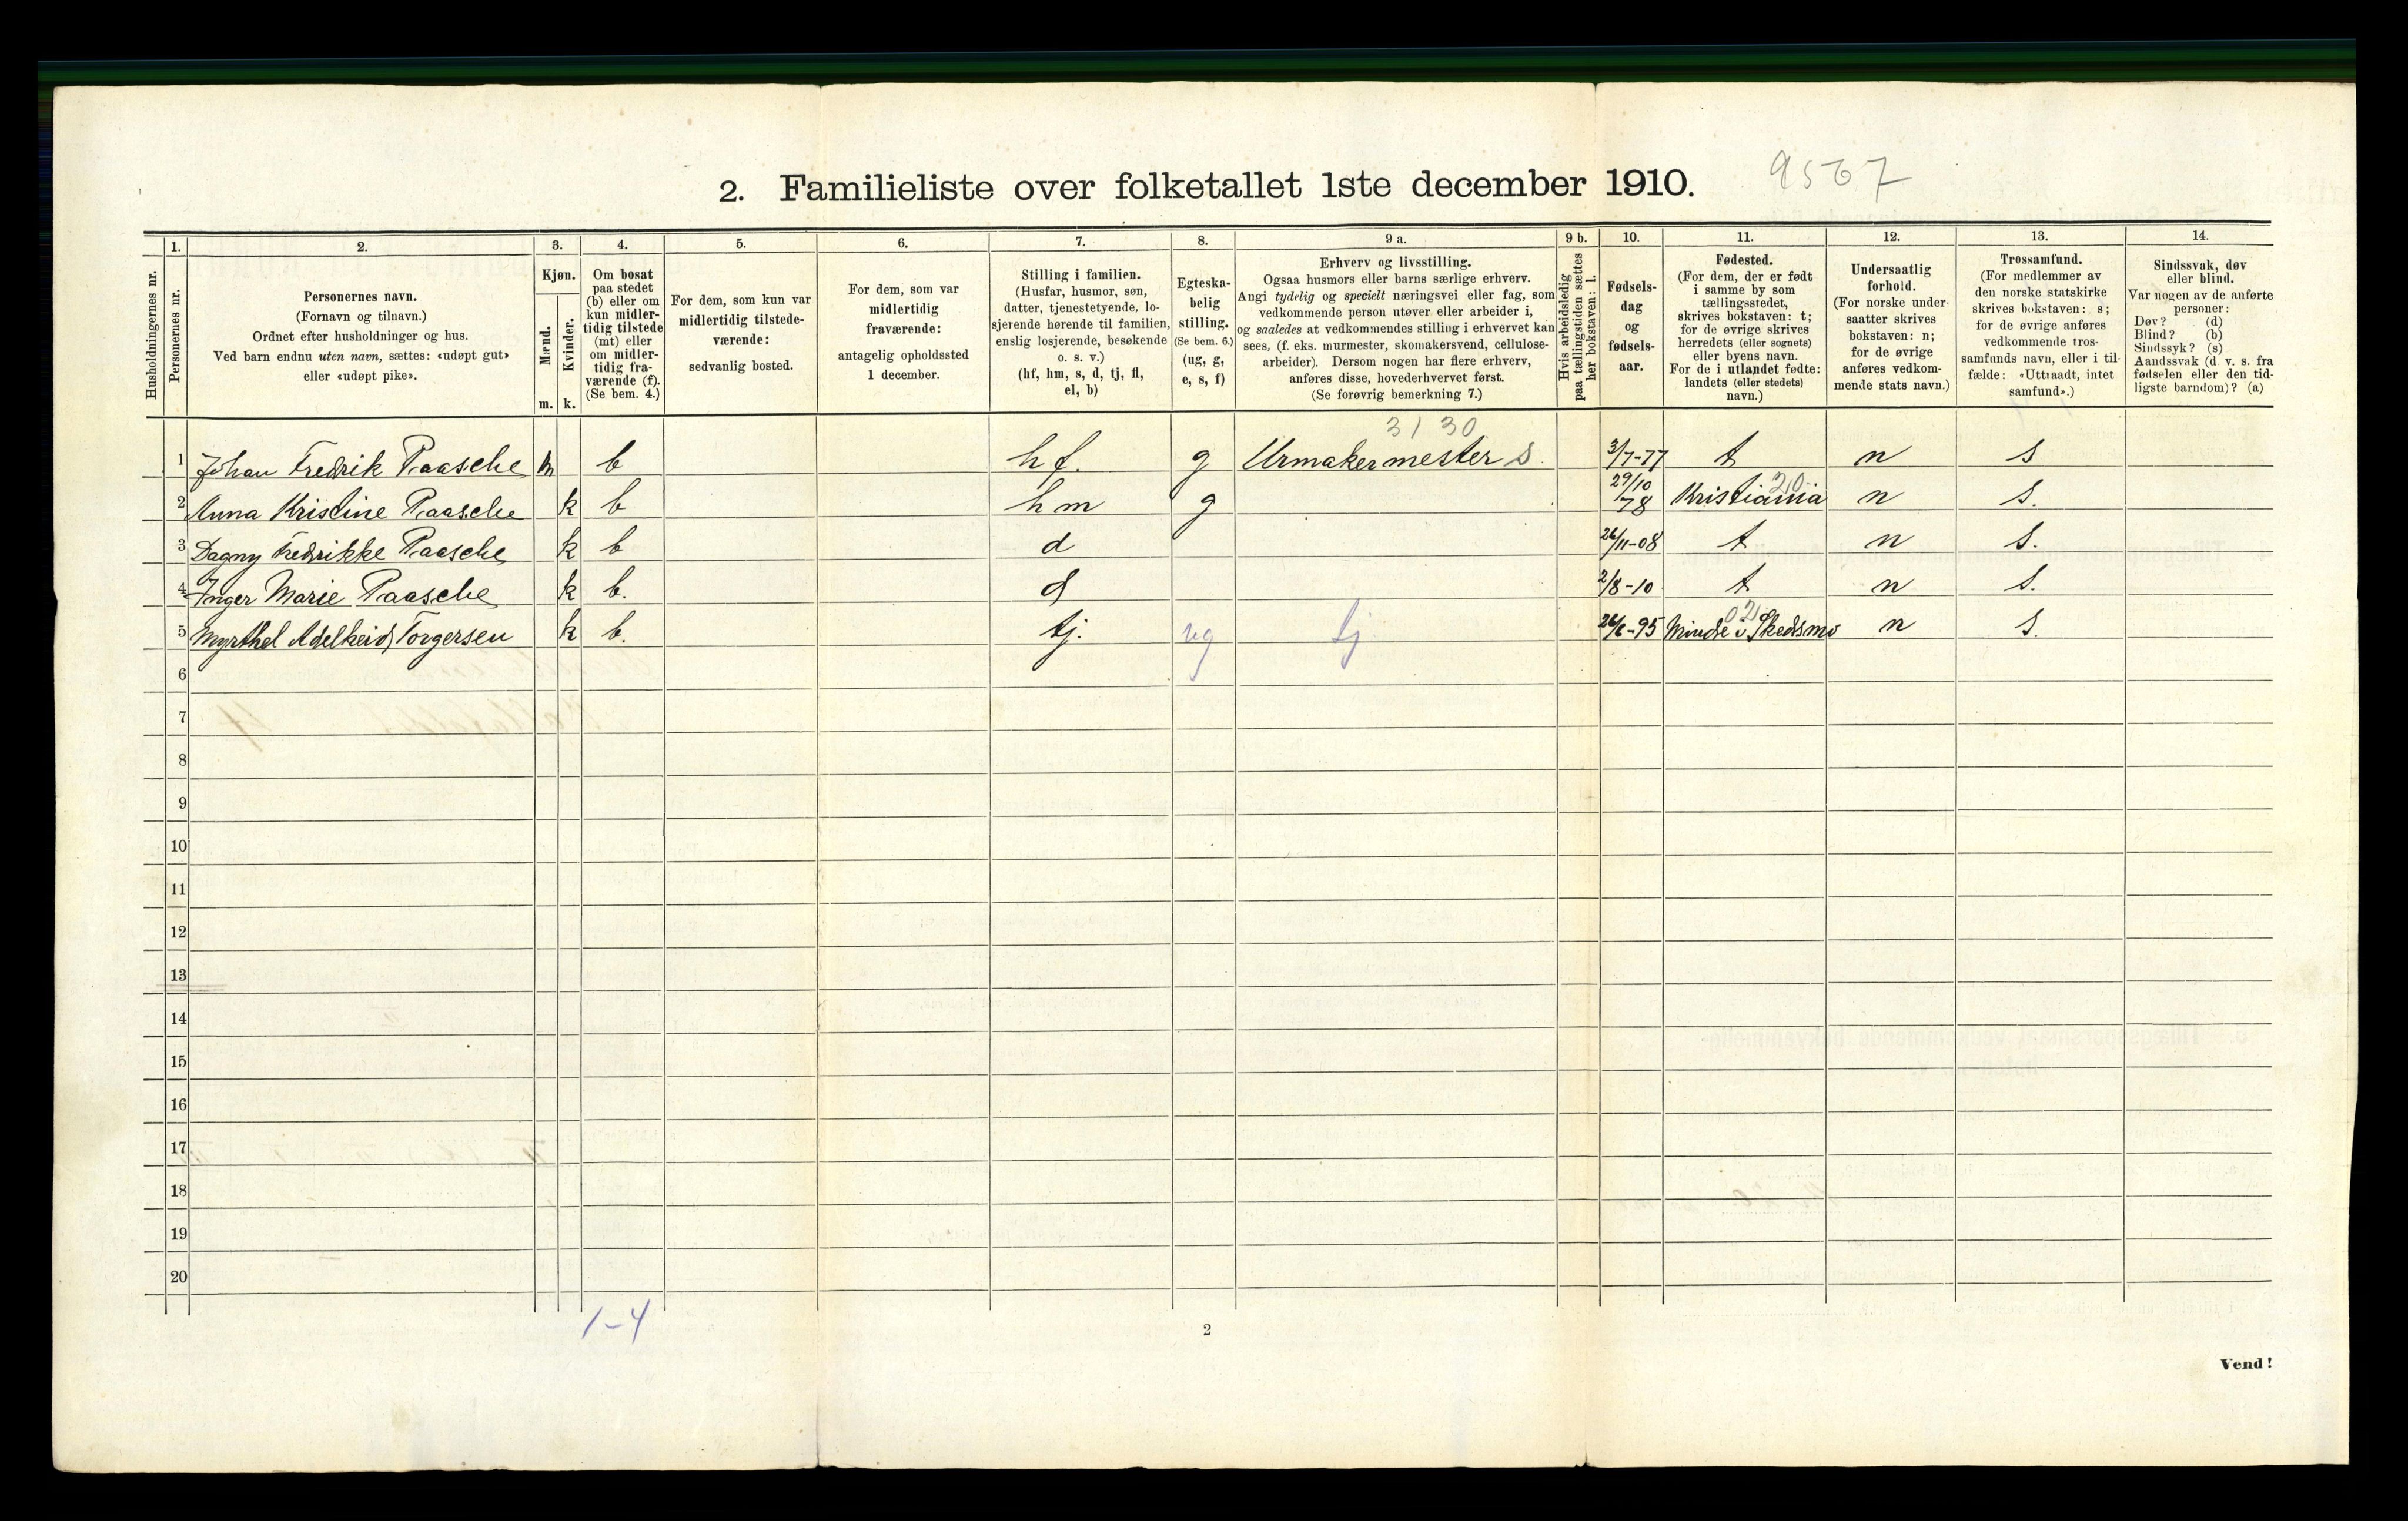 2. Familieliste over folketallet 1ste december 1910. 9567
1. 2. 3. 4. 5. 6. 7. 8. 9 a. 9 b. 10. 11. 12. 13. 14.
Husholdningernes nr.
Personernes nr.
Personernes navn.
(Fornavn og tilnavn.)
Ordnet efter husholdninger og hus.
Ved barn endnu uten navn, sættes: «udøpt gut»
eller «udøpt pike».
Kjøn.
Mænd.
m.
Kvinder.
k.
Om bosat
paa stedet
(b) eller om
kun midler-
tidig tilstede
(mt) eller
om midler-
tidig fra-
værende (f).
(Se bem. 4.)
For dem, som kun var
midlertidig tilstede-
værende:
sedvanlig bosted.
For dem, som var
midlertidig
fraværende:
antagelig opholdssted
1 december.
Stilling i familien.
(Husfar, husmor, søn,
datter, tjenestetyende, lo-
sjerende hørende til familien,
enslig losjerende, besøkende
o. s. v.)
(hf, hm, s, d, tj, fl,
el, b)
Egteska-
belig
stilling.
(Se bem. 6.)
(ug, g,
e, s, f)
Erhverv og livsstilling.
Ogsaa husmors eller barns særlige erhverv.
Angi tydelig og specielt næringsvei eller fag, som
vedkommende person utøver eller arbeider i,
og saaledes at vedkommendes stilling i erhvervet kan
sees, (f. eks. murmester, skomakersvend, cellulose-
arbeider). Dersom nogen har flere erhverv,
anføres disse, hovederhvervet først.
(Se forøvrig bemerkning 7.)
Hvis arbeidsledig
paa tællingstiden sættes
her bokstaven: l.
Fødsels-
dag
og
fødsels-
aar.
Fødested.
(For dem, der er født
i samme by som
tællingsstedet,
skrives bokstaven: t;
for de øvrige skrives
herredets (eller sognets)
eller byens navn.
For de i utlandet fødte:
landets (eller stedets)
navn.)
Undersaatlig
forhold.
(For norske under-
saatter skrives
bokstaven: n;
for de øvrige
anføres vedkom-
mende stats navn.)
Trossamfund.
(For medlemmer av
den norske statskirke
skrives bokstaven: s;
for de øvrige anføres
vedkommende tros-
samfunds navn, eller i til-
fælde: «Uttraadt, intet
samfund».)
Sindssvak, døv
eller blind.
Var nogen av de anførte
personer:
Døv? (d)
Blind? (b)
Sindssyk? (s)
Aandssvak (d. v. s. fra
fødselen eller den tid-
ligste barndom)? (a)
3130
1 Johan Fredrik Paasche m b hf. g Urmakermester s. 3/7-77 t n s
20
2 Anna Kristine Paasche k b hm g 29/10 78 Kristiania n s.
3 Dagny Fredrikke Paasche k b d 26/11-08 t n s.
4 Inger Marie Paasche k b. d 2/8-10 t n s.
02
5 Myrthel Adelheid Torgersen k b. tj. ug tj 26/6-95 Mindre i Skedsmo n s.
6
7
8
9
10
11
12
13
14
15
16
17
18
19
20
1-4
2
Vend!